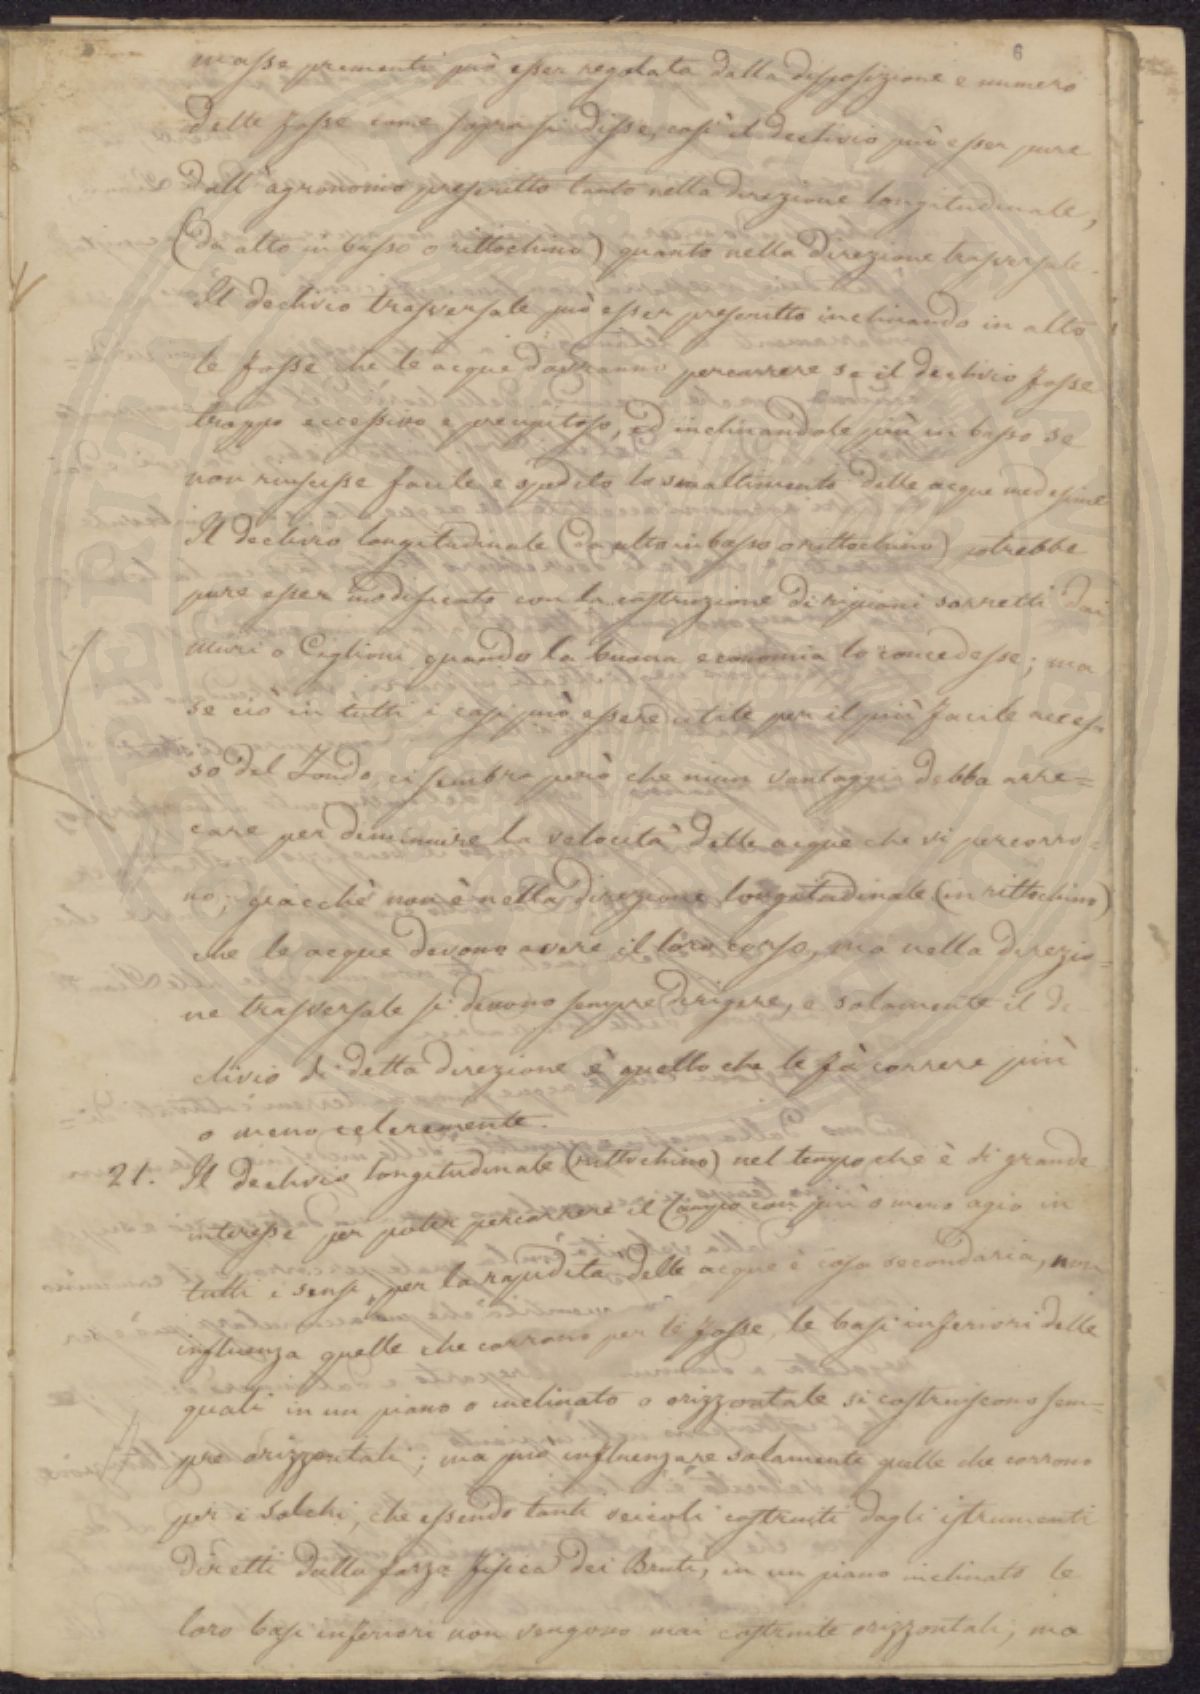 6
masse prementi può esser regolata dalla disposizione e numero
delle fosse come sopra si disse, così il declivio può esser pure
dall'agronomo prescritto tanto nella direzione longitudinale,
(da alto in basso o rittochino) quanto nella direzione trasversale.
Il declivio trasversale può esser prescritto inclinando in alto
le fosse che le acque dovranno percorrere se il declivio fosse
troppo eccessivo e precipitoso, ed inclinandole più in basso se
non riuscisse facile e spedito lo smaltimento delle acque medesime
Il declivio longitudinale (da alto in basso o rittochino) potrebbe
pure esser modificato con la costruzione di ripiani sorretti dai
muri o Ciglioni quando la buona economia lo concedesse; ma
se cio in tutti i casi può essere utile per il più facile acces-
so del Fondo, ci sembra però che niun vantaggio debba arre=
care per diminuire la velocità delle acque che vi percorro=
no; giacchè non è nella direzione longitudinale (in rittochino)
che le acque devono avere il loro corso, ma nella direzio=
ne trasversale si devono sempre dirigere, e solamente il de-
clivio di detta direzione è quello che le fà correre più
o meno celeremente.
21. Il declivio longitudinale (rittochino) nel tempo che è di grande
interesse per poter percorrere il Campo con più o meno agio in
tutti i sensi, per la rapidità delle acque è cosa secondaria, non
influenza quelle che corrono per le fosse, le basi inferiori delle
quali in un piano o inclinato o orizzontale si costruiscono sem=
pre orizzontali; ma può influenzare solamente quelle che corrono
per i solchi, che essendo tanti veicoli costruiti dagli istrumenti
diretti dalla forza fisica dei Bruti, in un piano inclinato le
loro basi inferiori non vengono mai costruite orizzontali, ma